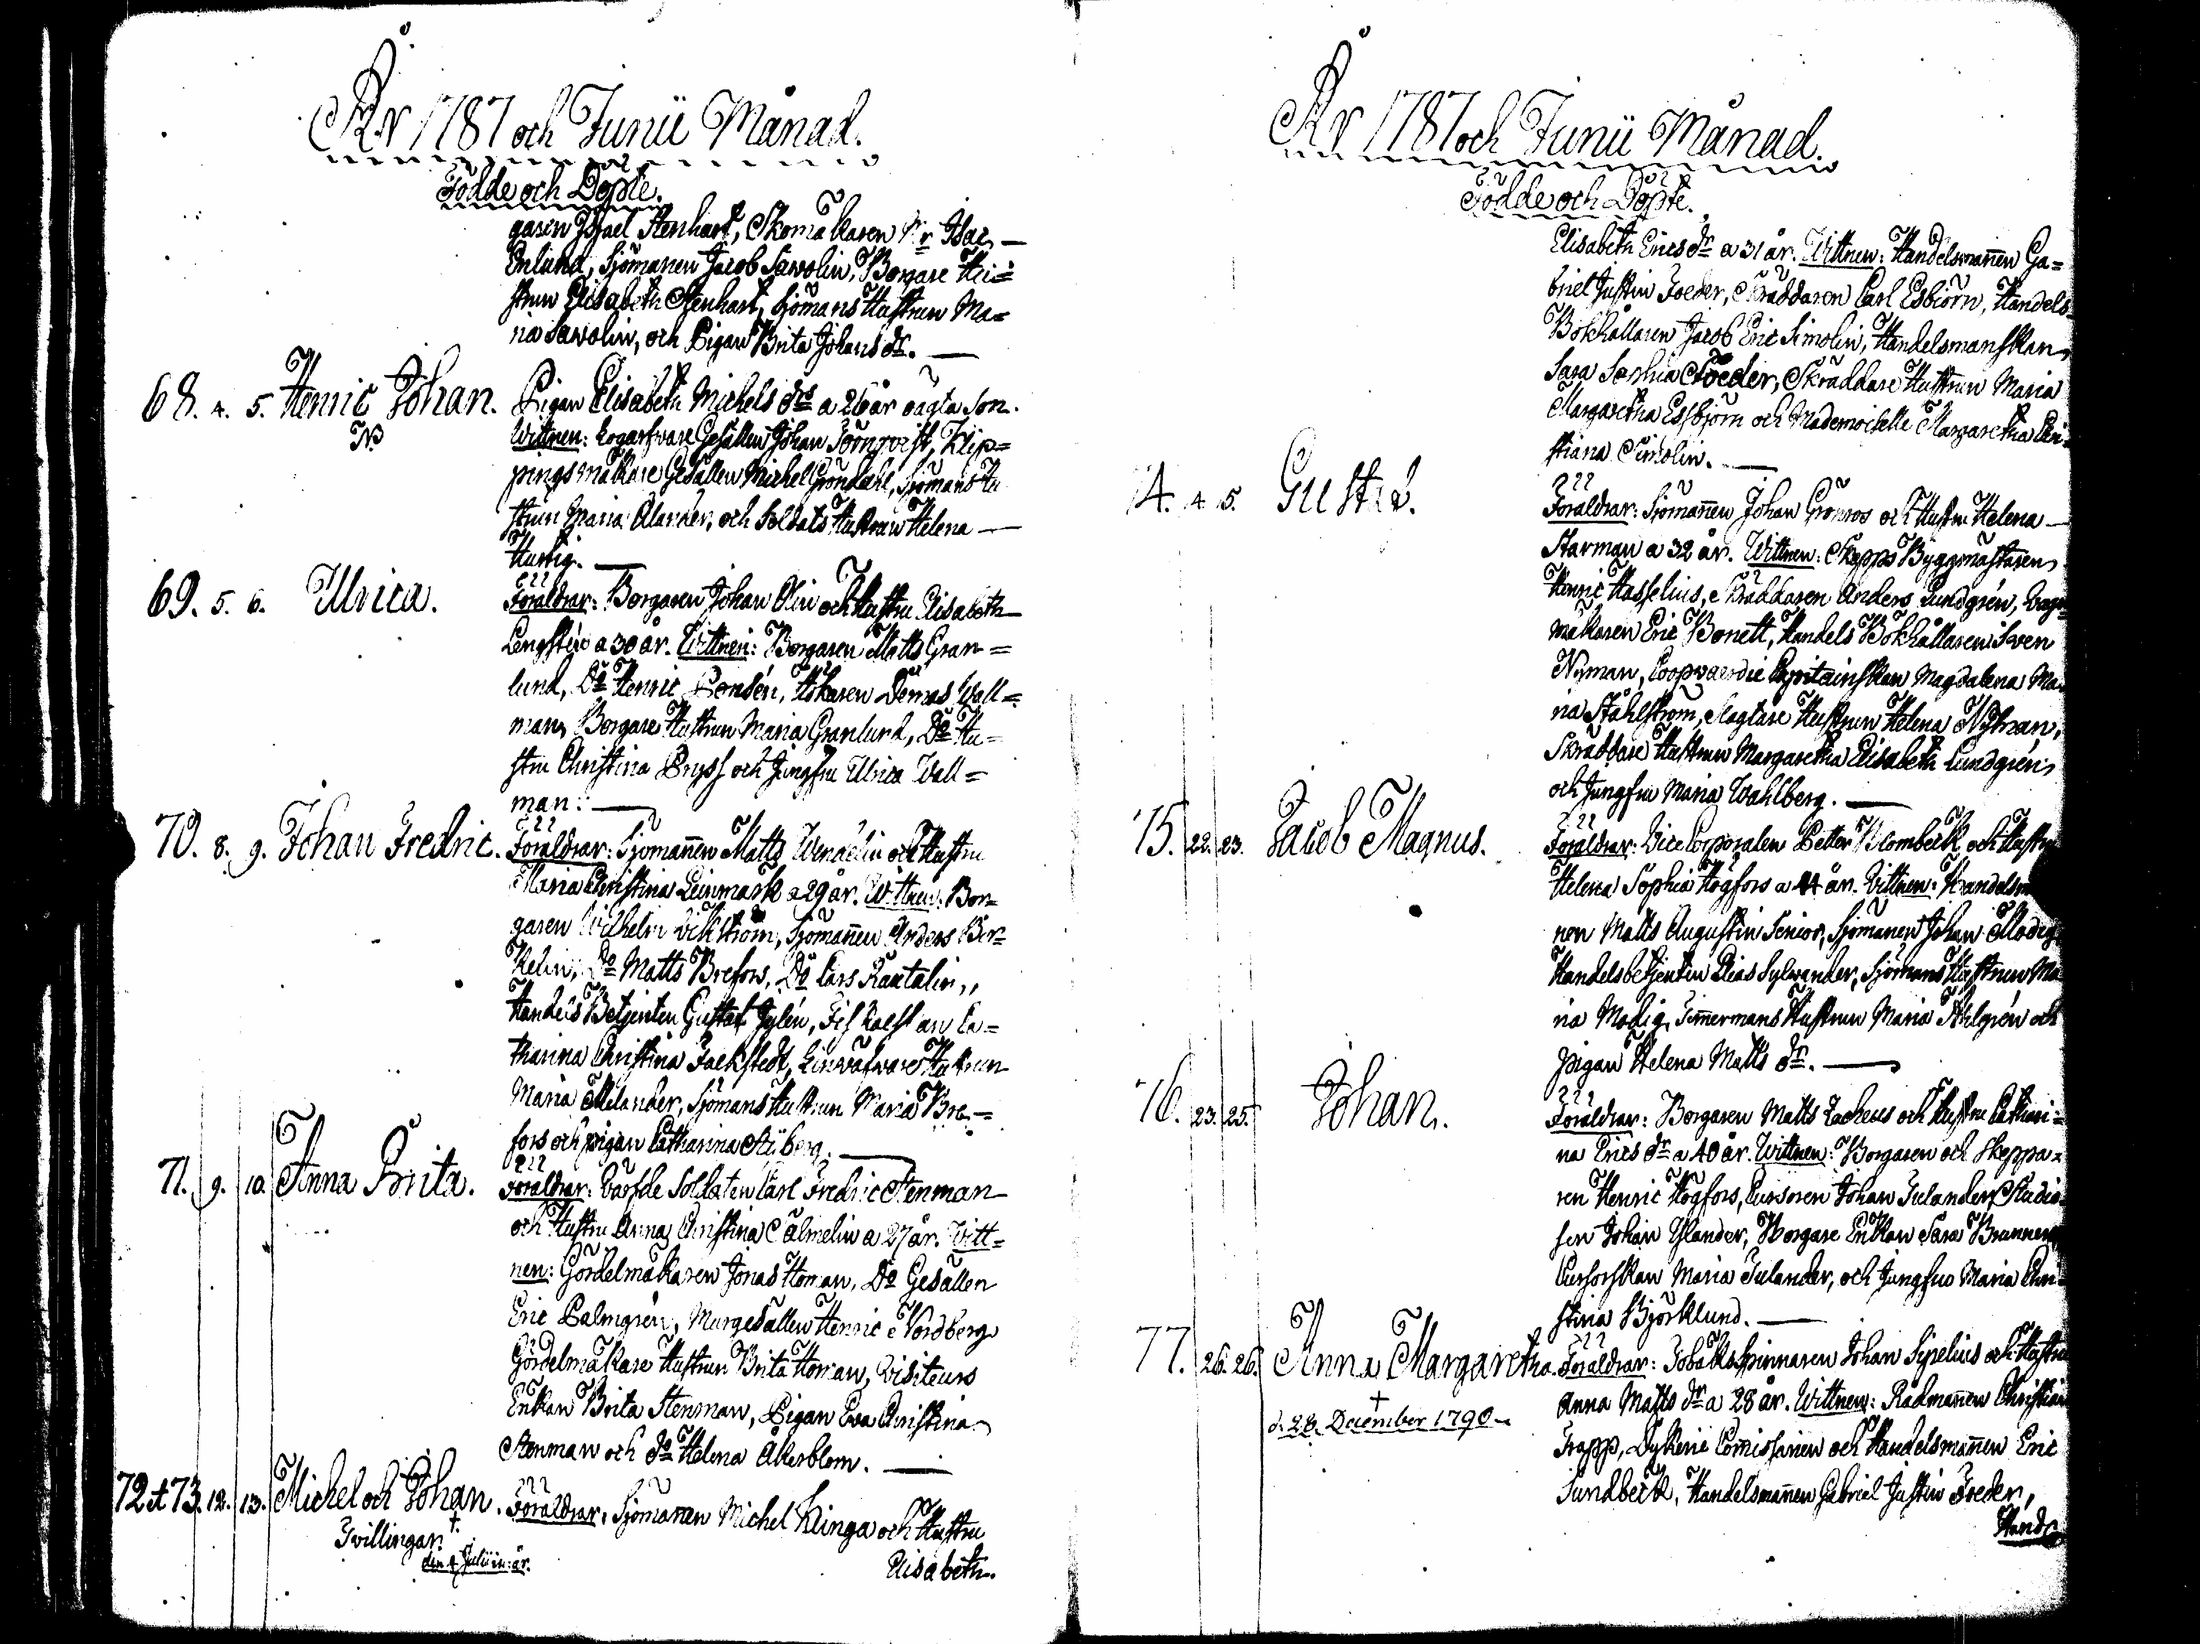 År 1787 och Junii Månad.
Födde och Döpte.
garen Israel Stenhart, Skomakaren Isac
Enlund, Sjömannen Jacob Sawolin, Borgare Hu=
strun Elisabeth Stenhart, Sjömans Hustrun Ma=
ria Sawolin, och Pigan Brita Johans dr.
68. 4. 5. Henric Johan. Pigan Elisabeth Michels dr a 26 år oägta son.
Wittnen: Gesällen Johan Klip=
pingsmakare Gesällen Michel Gröndahl, Sjömans Hu
strun Maria och Soldats Hustrun Helena
Hurtig.
69. 5. 6. Ulrica. Föräldrar: Borgaren Johan Olin och Hustru Elisabeth
a 30 år. Wittnen: Borgaren Matts Gran=
lund, Do Henric Hökaren Wall=
man, Borgare Hustrun Maria Granlund, Do Hu=
stru Christina och Jungfru Ulrica Wall=
man.
70. 8. 9. Johan Fredric. Föräldrar: Sjömannen Matts och Hustru
Maria Christina Leinmark a 29 år. Wittnen: Bor=
garen Wilhelm Wikström, Sjömannen Anders Ber=
kelin, Do Matts Brefors, Do Lars Rautalin,
Handels Betjenten Gustaf Ca=
tharina Christina Falkstedt, Hustrun
Maria Melander, Sjömans Hustrun Maria Bre=
fors och pigan Catharina
71. 9. 10. Anna Brita. Föräldrar: Soldaten Carl Fredric Stenman
och Hustru Anna Christina Calmelin a 27 år. Witt=
nen: Gördelmakaren Jonas Homan, Do Gesällen
Eric Palmgrén, Murgesällen Henric Nordberg
Gördelmakare Hustrun Brita Homan, Visiteurs
Enkan Brita Stenman, Pigan Eva Christina
Stenman och do Helena Åkerblom.
72 et 73. 12. 13. Michel och Johan. Föräldrar: Sjömannen Michel Klinga och Hustru
Tvillingar. †
den 4 Julii in: år.
Elisabeth
År 1787 och Junii Månad.
Födde och Döpte.
Elisabeth Erics dr a 31 år. Wittnen: Handelsmannen Ga=
briel Justin Foeder, Skräddaren Carl Esbiörn, Handels
Bokhållaren Jacob Eric Simolin, Handelsmanskan
Sara Sophia Foeder, Skräddare Hustrun Maria
Margaretha Essbjörn och Mademoiselle Margaretha Chri
stiana Simolin.
74. 4. 5. Gustav. Föräldrar: Sjömannen Johan Grönros och Hustru Helena
Starman a 32 år. Wittnen: Skepps Byggmästaren
Henric Hasselius, Skräddaren Anders Lundgrén,
makaren Eric Bonett, Handels Bokhållaren Sven
Nyman, Coopvaerdie Capitainskan Magdalena Ma
ria Ståhlström, Slagtare Hustrun Helena Nyman,
Skräddare Hustrun Margaretha Elisabeth Lundgrén,
och Jungfru Maria Wahlberg.
75. 22. 23. Jacob Magnus. Föräldrar: Vice Corporalen Petter Blombeck och Hustru
Helena Sophia Högfors a 44 år. Vittnen: Handelsm
nen Matts Augustin Senior, Sjömannen Johan Modig
Handelsbetjenten Elias Sylvander, Sjömans Hustrun Ma
ria Modig, Timmermans Hustrun Maria Ahlgrén och
pigan Helena Matts dr.
76. 23. 25. Johan. Föräldrar: Borgaren Matts Zacheus och Hustru Cathari=
na Erics dr a 40 år. Wittnen: Borgaren och Skeppa=
ren Henric Högfors, Cursoren Johan Julander, Studio
sen Johan Ylander, Borgare Enkan Sara Brunner
Cursorskan Maria Julander, och Jungfru Maria Chri
stina Björklund.
77. 26. 26. Anna Margaretha. Föräldrar: Tobaksspinnaren Johan Sipelius och Hustru
†
d. 28. December 1790.
Anna Matts dr a 28 år. Wittnen: Rådmannen Christian
Trapp, Dykerie Comissarien och Handelsmannen Eric
Sundbeck, Handelsmannen Gabriel Justin Foeder,
Hand